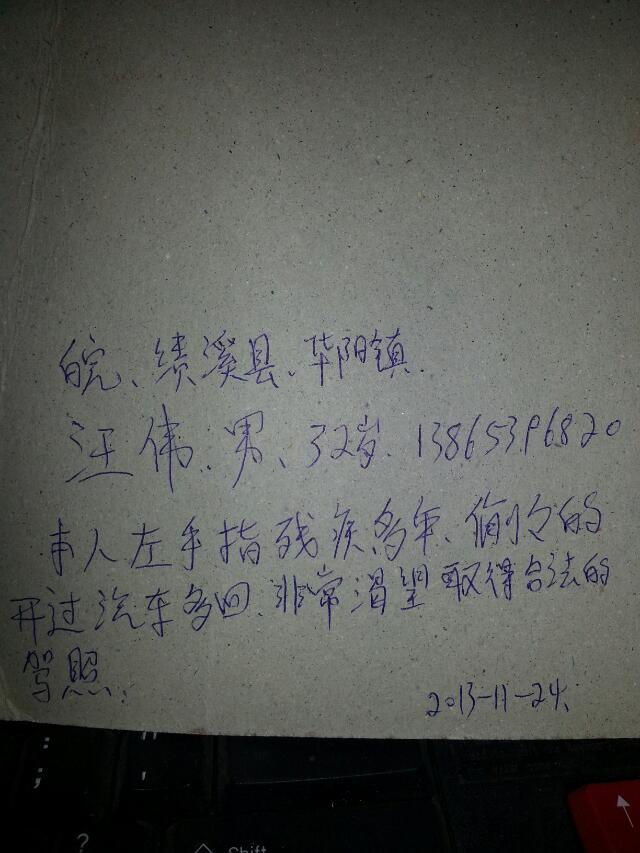 皖、绩溪县、华阳镇.
汪伟、男、32岁. 13865396820
本人左手指残疾多年、偷偷的
开过汽车多回、非常渴望取得合法的
驾照.
2013-11-24.
: "
; '
?
Shift